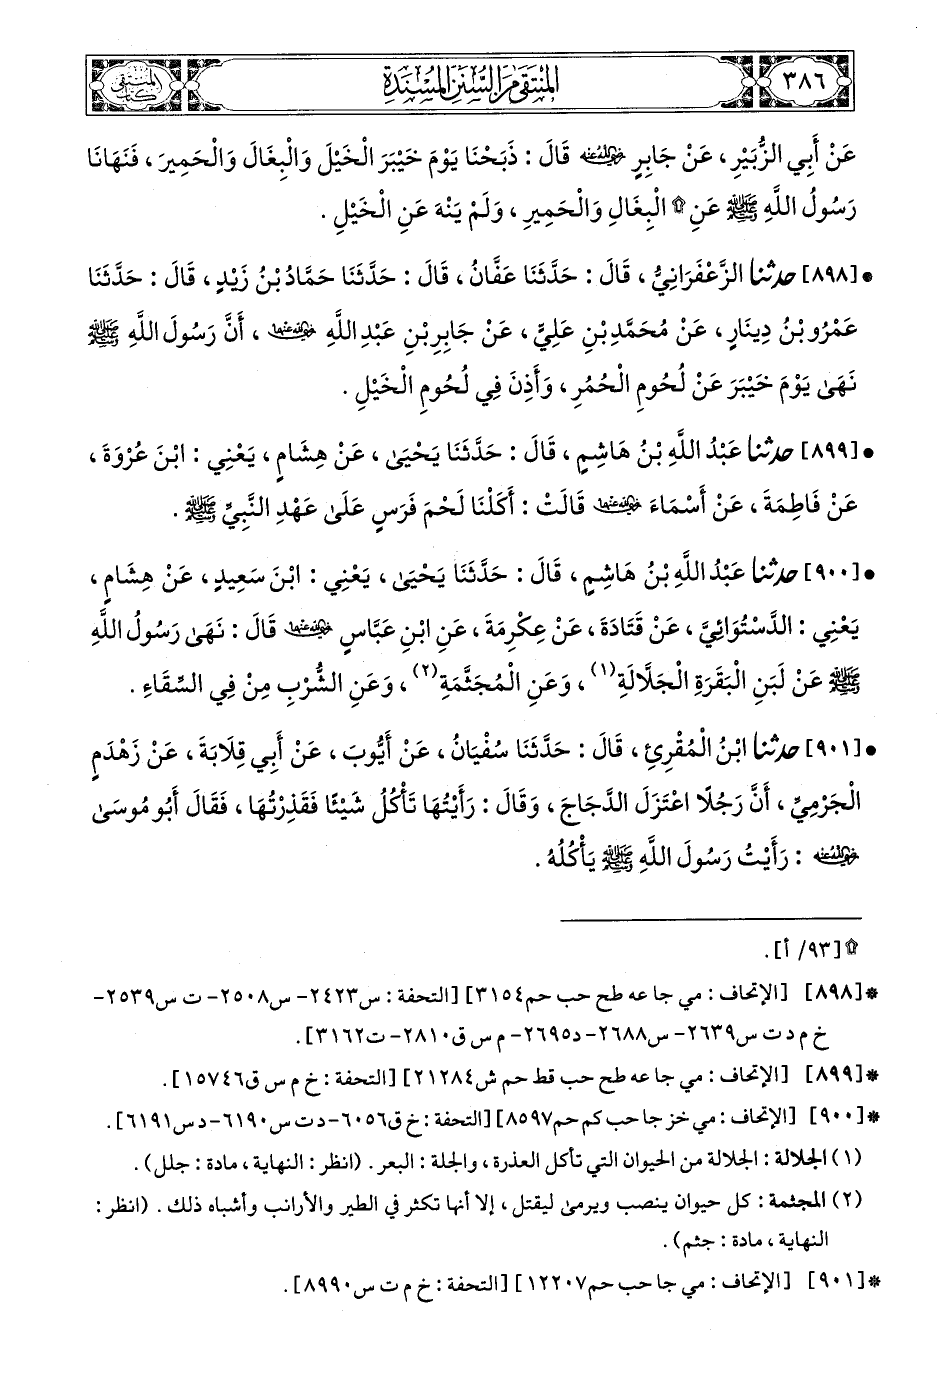 ٣٨٦
المنتقى من السنن المسندة
كتاب المنتقى
عَنْ أَبِي الزُّبَيْرِ، عَنْ جَابِرٍ رضي الله عنه قَالَ : ذَبَحْنَا يَوْمَ خَيْبَرَ الْخَيْلَ وَالْبِغَالَ وَالْحَمِيرَ، فَنَهَانَا
رَسُولُ اللَّهِ ﷺ عَنِ ۩ الْبِغَالِ وَالْحَمِيرِ، وَلَمْ يَنْهَ عَنِ الْخَيْلِ.
• [٨٩٨] حدثنا الزَّعْفَرَانِيُّ، قَالَ : حَدَّثَنَا عَفَّانُ، قَالَ : حَدَّثَنَا حَمَّادُ بْنُ زَيْدٍ، قَالَ : حَدَّثَنَا
عَمْرُو بْنُ دِينَارٍ، عَنْ مُحَمَّدِ بْنِ عَلِيٍّ، عَنْ جَابِرِ بْنِ عَبْدِ اللَّهِ رضي الله عنهما، أَنَّ رَسُولَ اللَّهِ ﷺ
نَهَى يَوْمَ خَيْبَرَ عَنْ لُحُومِ الْحُمُرِ، وَأَذِنَ فِي لُحُومِ الْخَيْلِ.
• [٨٩٩] حدثنا عَبْدُ اللَّهِ بْنُ هَاشِمٍ، قَالَ : حَدَّثَنَا يَحْيَى، عَنْ هِشَامٍ، يَعْنِي : ابْنَ عُرْوَةَ،
عَنْ فَاطِمَةَ، عَنْ أَسْمَاءَ رضي الله عنها قَالَتْ : أَكَلْنَا لَحْمَ فَرَسٍ عَلَى عَهْدِ النَّبِيِّ ﷺ.
• [٩٠٠] حدثنا عَبْدُ اللَّهِ بْنُ هَاشِمٍ، قَالَ : حَدَّثَنَا يَحْيَى، يَعْنِي : ابْنَ سَعِيدٍ، عَنْ هِشَامٍ،
يَعْنِي : الدَّسْتُوَائِيَّ، عَنْ قَتَادَةَ، عَنْ عِكْرِمَةَ، عَنِ ابْنِ عَبَّاسٍ رضي الله عنهما قَالَ : نَهَى رَسُولُ اللَّهِ
ﷺ عَنْ لَبَنِ الْبَقَرَةِ الْجَلَّالَةِ(١)، وَعَنِ الْمُجَثَّمَةِ(٢)، وَعَنِ الشُّرْبِ مِنْ فِي السِّقَاءِ.
• [٩٠١] حدثنا ابْنُ الْمُقْرِئِ، قَالَ : حَدَّثَنَا سُفْيَانُ، عَنْ أَيُّوبَ، عَنْ أَبِي قِلَابَةَ، عَنْ زَهْدَمٍ
الْجَرْمِيِّ، أَنَّ رَجُلًا اعْتَزَلَ الدَّجَاجَ، وَقَالَ : رَأَيْتُهَا تَأْكُلُ شَيْئًا فَقَذِرْتُهَا، فَقَالَ أَبُو مُوسَى
رضي الله عنه : رَأَيْتُ رَسُولَ اللَّهِ ﷺ يَأْكُلُهُ.
۩ [٩٣/ أ].
* [٨٩٨] [الإتحاف : مي جا عه طح حب حم ٣١٥٤] [التحفة : س ٢٤٢٣- س ٢٥٠٨- ت س ٢٥٣٩-
خ م د ت س ٢٦٣٩- س ٢٦٨٨- د ٢٦٩٥- م س ق ٢٨١٠- ت ٣١٦٢].
* [٨٩٩] [الإتحاف : مي جا عه طح حب قط حم ش ٢١٢٨٤] [التحفة : خ م س ق ١٥٧٤٦].
* [٩٠٠] [الإتحاف : مي خز جا حب كم حم ٨٥٩٧] [التحفة : خ ق ٦٠٥٦- د ت س ٦١٩٠- د س ٦١٩١].
(١) الجلالة : الجلالة من الحيوان التي تأكل العذرة، والجلة : البعر. (انظر : النهاية، مادة : جلل).
(٢) المجثمة : كل حيوان ينصب ويرمى ليقتل، إلا أنها تكثر في الطير والأرانب وأشباه ذلك. (انظر :
النهاية، مادة : جثم).
* [٩٠١] [الإتحاف : مي جا حب حم ١٢٢٠٧] [التحفة : خ م ت س ٨٩٩٠].